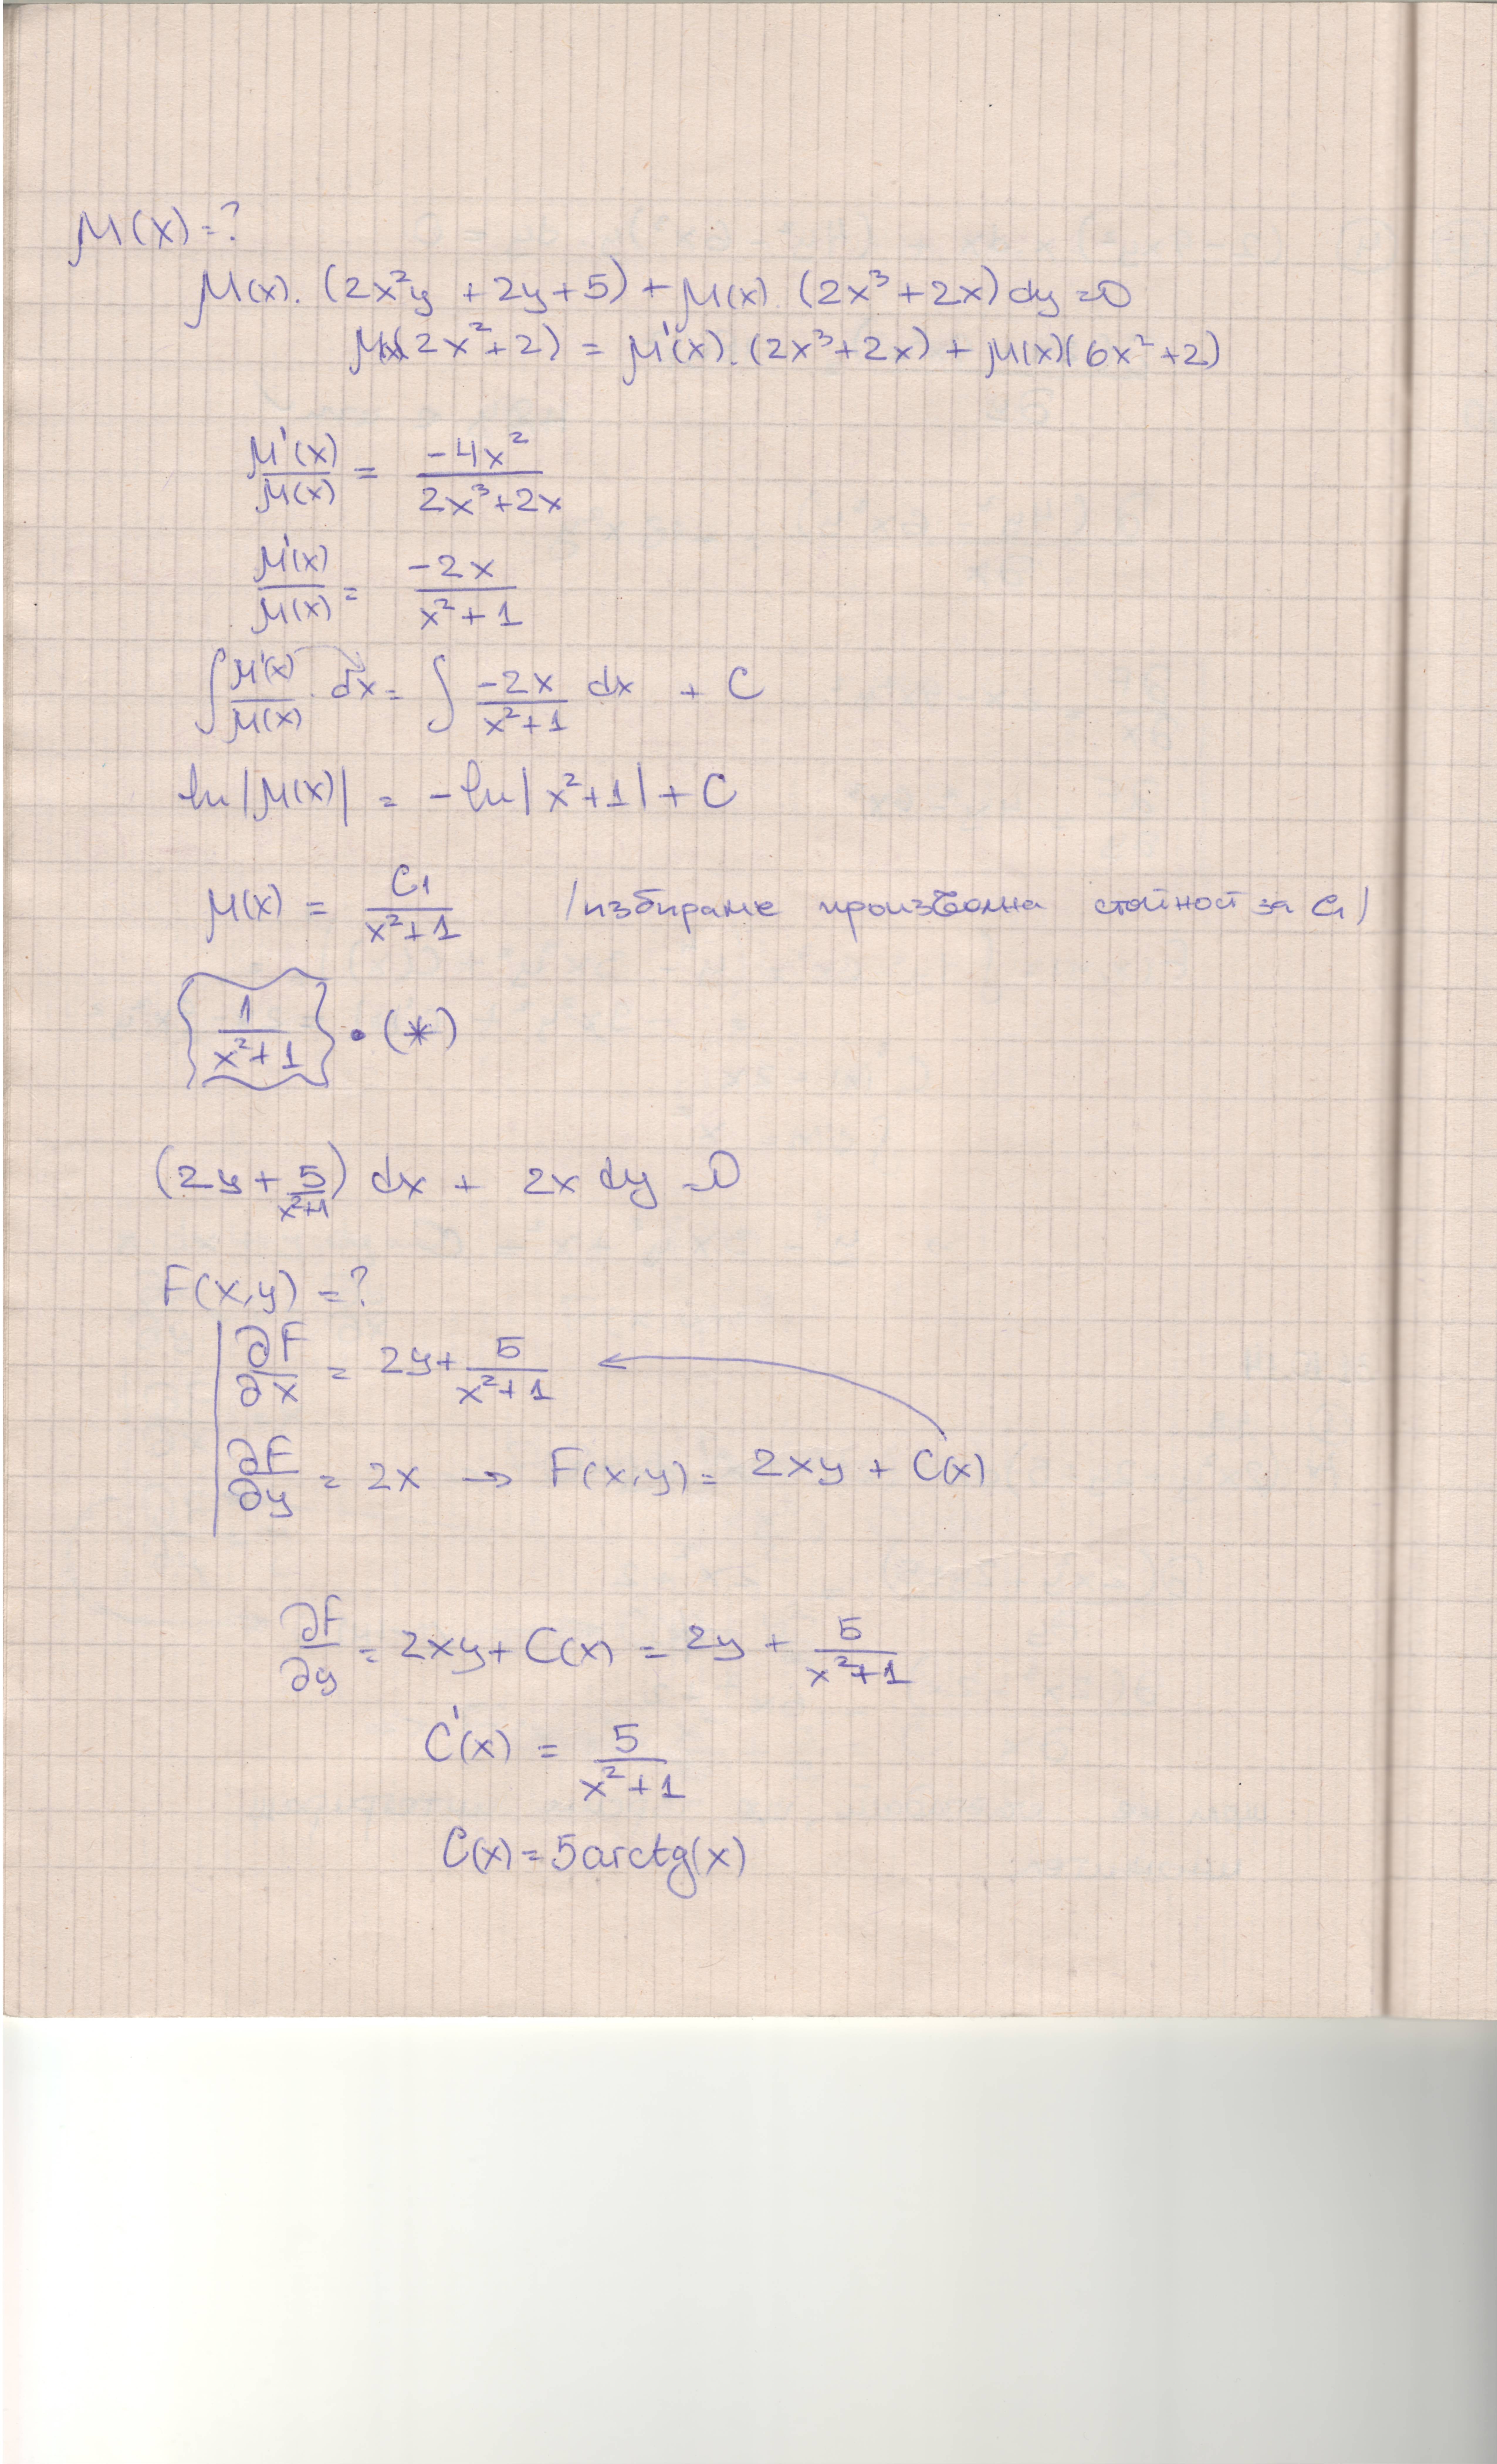 μ(x)=?
μ(x). (2x²y + 2y + 5) + μ(x) (2x³ + 2x) dy = 0
μ(x)(2x² + 2) = μ'(x). (2x³ + 2x) + μ(x)(6x² + 2)
μ'(x)/μ(x) = -4x²/(2x³ + 2x)
μ'(x)/μ(x) = -2x/(x² + 1)
∫ μ'(x)/μ(x) . dx = ∫ -2x/(x² + 1) dx + C
ln|μ(x)| = -ln|x² + 1| + C
μ(x) = C₁/(x² + 1) /избираме произволна стойност за C₁/
{1/(x² + 1)} • (*)
(2y + 5/(x²+1)) dx + 2x dy = 0
F(x,y) = ?
∂F/∂x = 2y + 5/(x² + 1)
∂F/∂y = 2x → F(x,y) = 2xy + C(x)
∂F/∂y = 2xy + C(x) = 2y + 5/(x² + 1)
C'(x) = 5/(x² + 1)
C(x) = 5arctg(x)